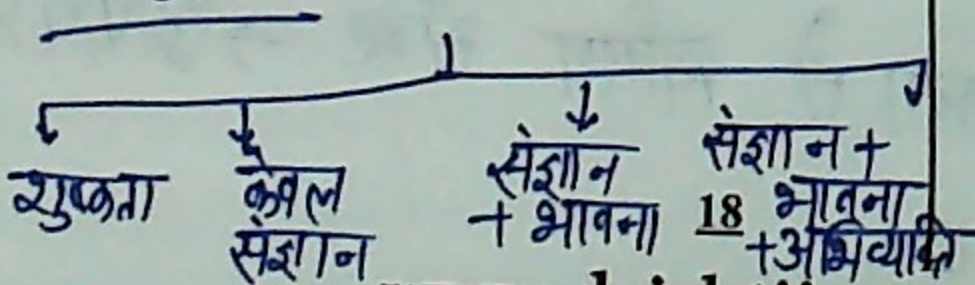 शुष्कता
केवल
संज्ञान
संज्ञान
+ भावना
संज्ञान +
भावना
+अभिव्यक्ति
18